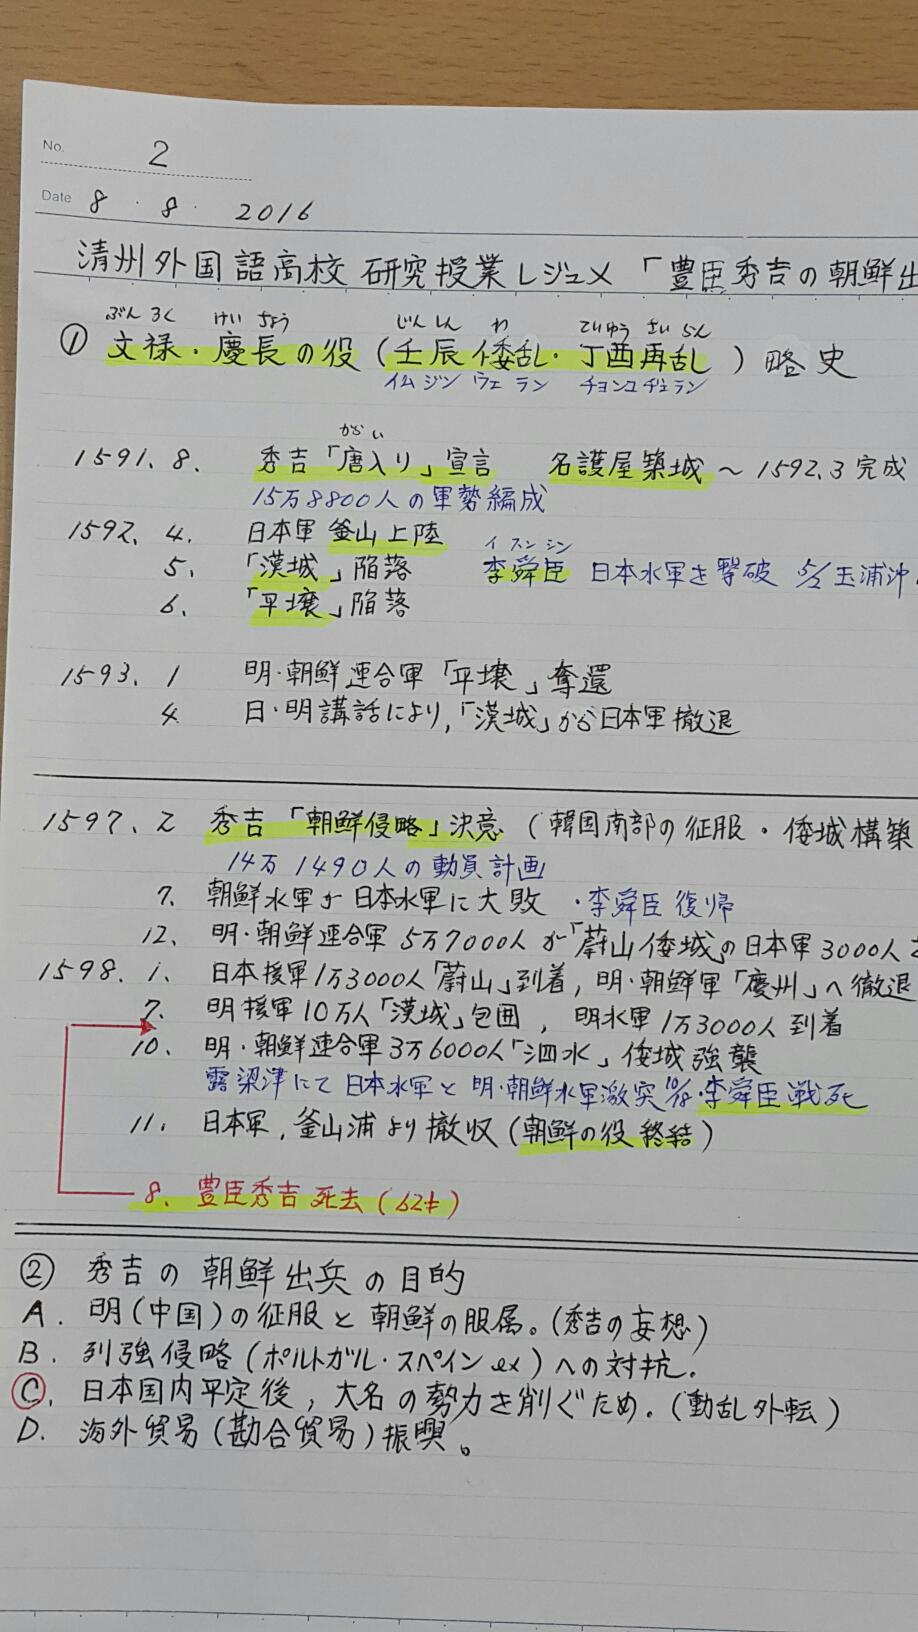 No. 2
Date 8 · 8 · 2016
清州外国語高校 研究授業レジュメ 「豊臣秀吉の朝鮮出
ぶん ろく けい ちょう じん しん わ ていゆう さい らん
① 文禄・慶長の役(壬辰倭乱・丁酉再乱)略史
イム ジン ウェ ラン チョンユ ヂェラン
がら い
1591. 8. 秀吉「唐入り」宣言 名護屋築城 ~ 1592.3 完成
15万8800人の軍勢編成
1592. 4. 日本軍 釜山上陸
イ スン シン
5. 「漢城」陥落 李舜臣 日本水軍を撃破 5/2 玉浦沖
6. 「平壌」陥落
1593. 1 明・朝鮮連合軍「平壌」奪還
4. 日・明講話により,「漢城」から日本軍撤退
1597. 2 秀吉「朝鮮侵略」決意 (韓国南部の征服・倭城構築
14万1490人の動員計画
7. 朝鮮水軍が日本水軍に大敗 ・李舜臣復帰
12. 明・朝鮮連合軍 5万7000人が「蔚山倭城」の日本軍3000人
1598. 1. 日本援軍1万3000人「蔚山」到着, 明・朝鮮軍「慶州」へ撤退
7. 明援軍10万人「漢城」包囲, 明水軍1万3000人到着
10. 明・朝鮮連合軍3万6000人「泗水」倭城強襲
露梁津にて日本水軍と明・朝鮮水軍激突 10/18・李舜臣戦死
11. 日本軍, 釜山浦より撤収(朝鮮の役 終結)
8. 豊臣秀吉 死去(62才)
② 秀吉の朝鮮出兵の目的
A. 明(中国)の征服と朝鮮の服属。(秀吉の妄想)
B. 列強侵略(ポルトガル・スペインex)への対抗.
C. 日本国内平定後, 大名の勢力を削ぐため.(動乱外転)
D. 海外貿易(勘合貿易)振興。